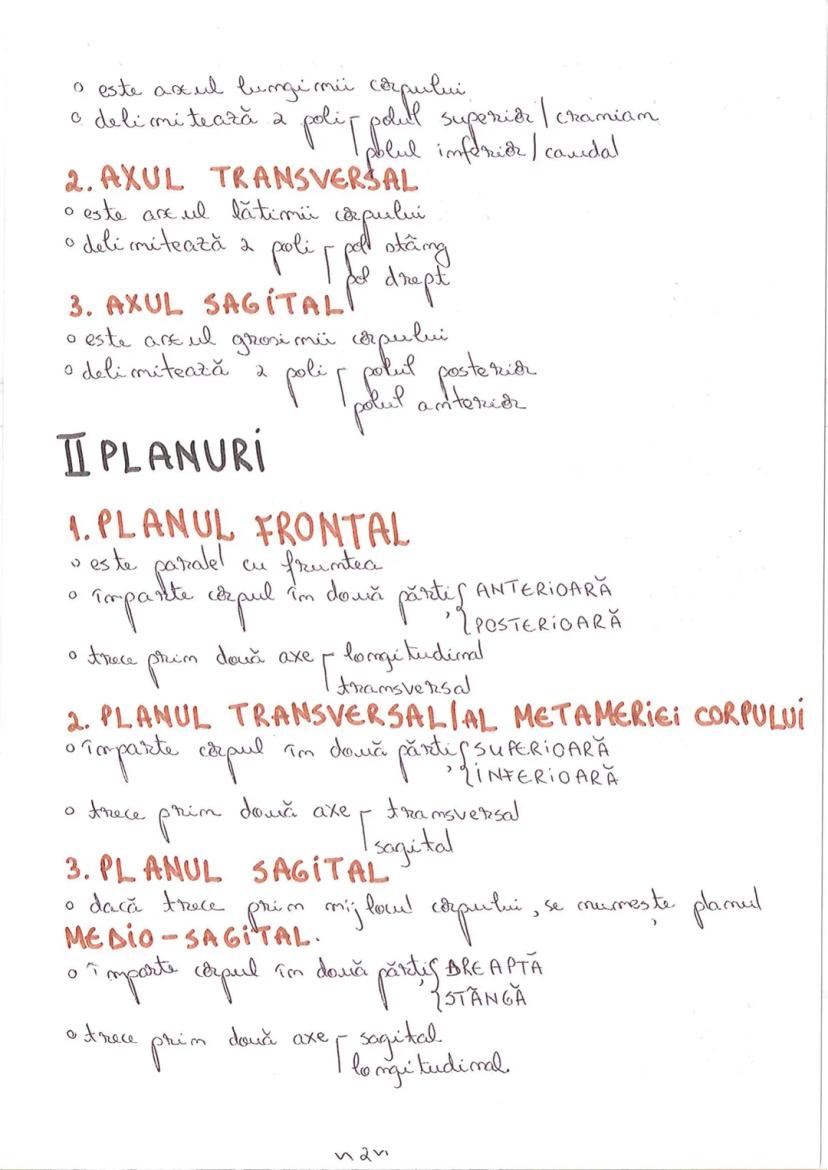 o este axul lungimii corpului
o delimitează 2 poli polul superior/cranian
polul inferior/caudal
2. AXUL TRANSVERSAL
o este axul lătimii corpului
o delimitează 2 poli pol stâng
pol drept
3. AXUL SAGITAL
o este axul grosimii corpului
o delimitează 2 poli polul posterior
polul anterior
II PLANURI
1. PLANUL FRONTAL
o este paralel cu fruntea
o împarte corpul în două părți { ANTERIOARĂ
POSTERIOARĂ
o trece prin două axe longitudinal
transversal
2. PLANUL TRANSVERSAL/AL METAMERIEI CORPULUI
o împarte corpul în două părți { SUPERIOARĂ
INFERIOARĂ
o trece prin două axe transversal
sagital
3. PLANUL SAGITAL
o dacă trece prin mijlocul corpului, se numește planul
MEDIO-SAGITAL.
o împarte corpul în două părți { DREAPTĂ
STÂNGĂ
o trece prin două axe sagital
longitudinal.
~2~